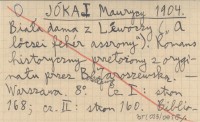 O JÓKAI Maurycy 1904.
Biała dama z Lewoczy („A
lőcsei fehér asszony"). Romans
historyczny przełożony z orygi-
nału przez B. Jaroszewską. —
Warszawa. 8° Cz. I: stron
168; cz. II: stron 160. Biblio-